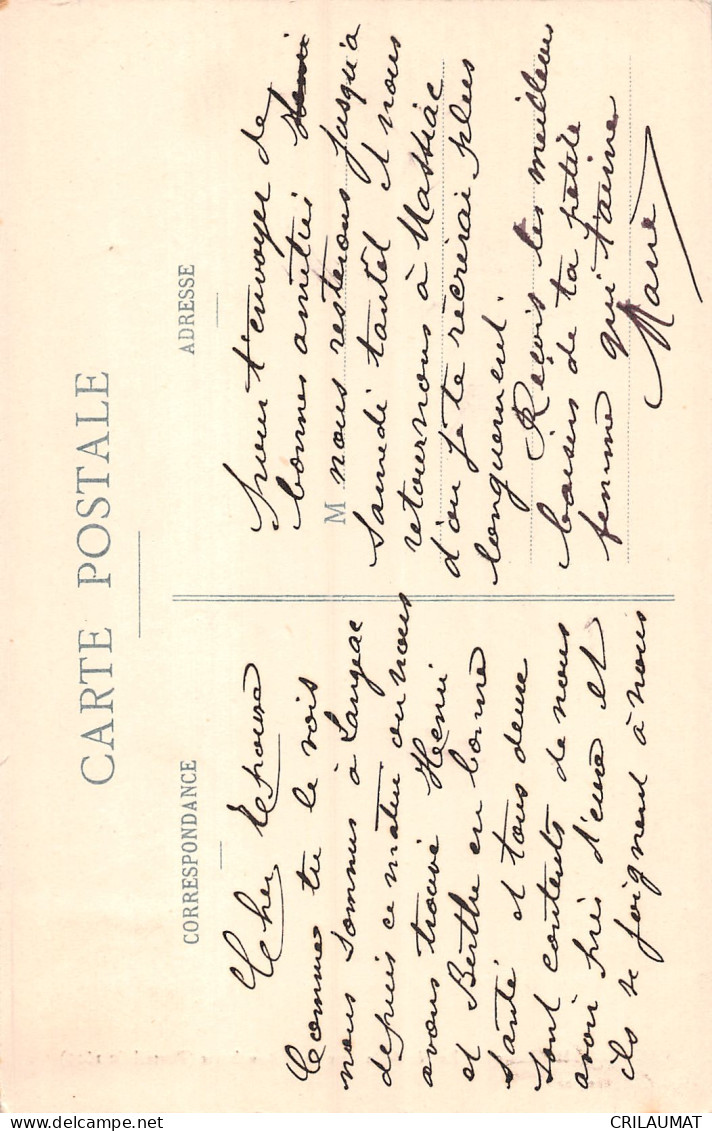 CARTE POSTALE
CORRESPONDANCE
Cher Epoux
Comme tu le vois
nous sommes à Langeac
depuis ce matin ou nous
avons trouvé Henri
et Berthe en bonne
santé et tous deux
sont contents de nous
avoir près d'eux et
ils se joignent à nous
ADRESSE
pour t'envoyer de
bonnes amitiés
M nous resterons jusqu'a
samedi tantôt et nous
retournons à Massiac
d'ou je te récrirai plus
longuement.
Reçois les meilleurs
baisers de ta petite
femme qui t'aime
Marie
CRILAUMAT